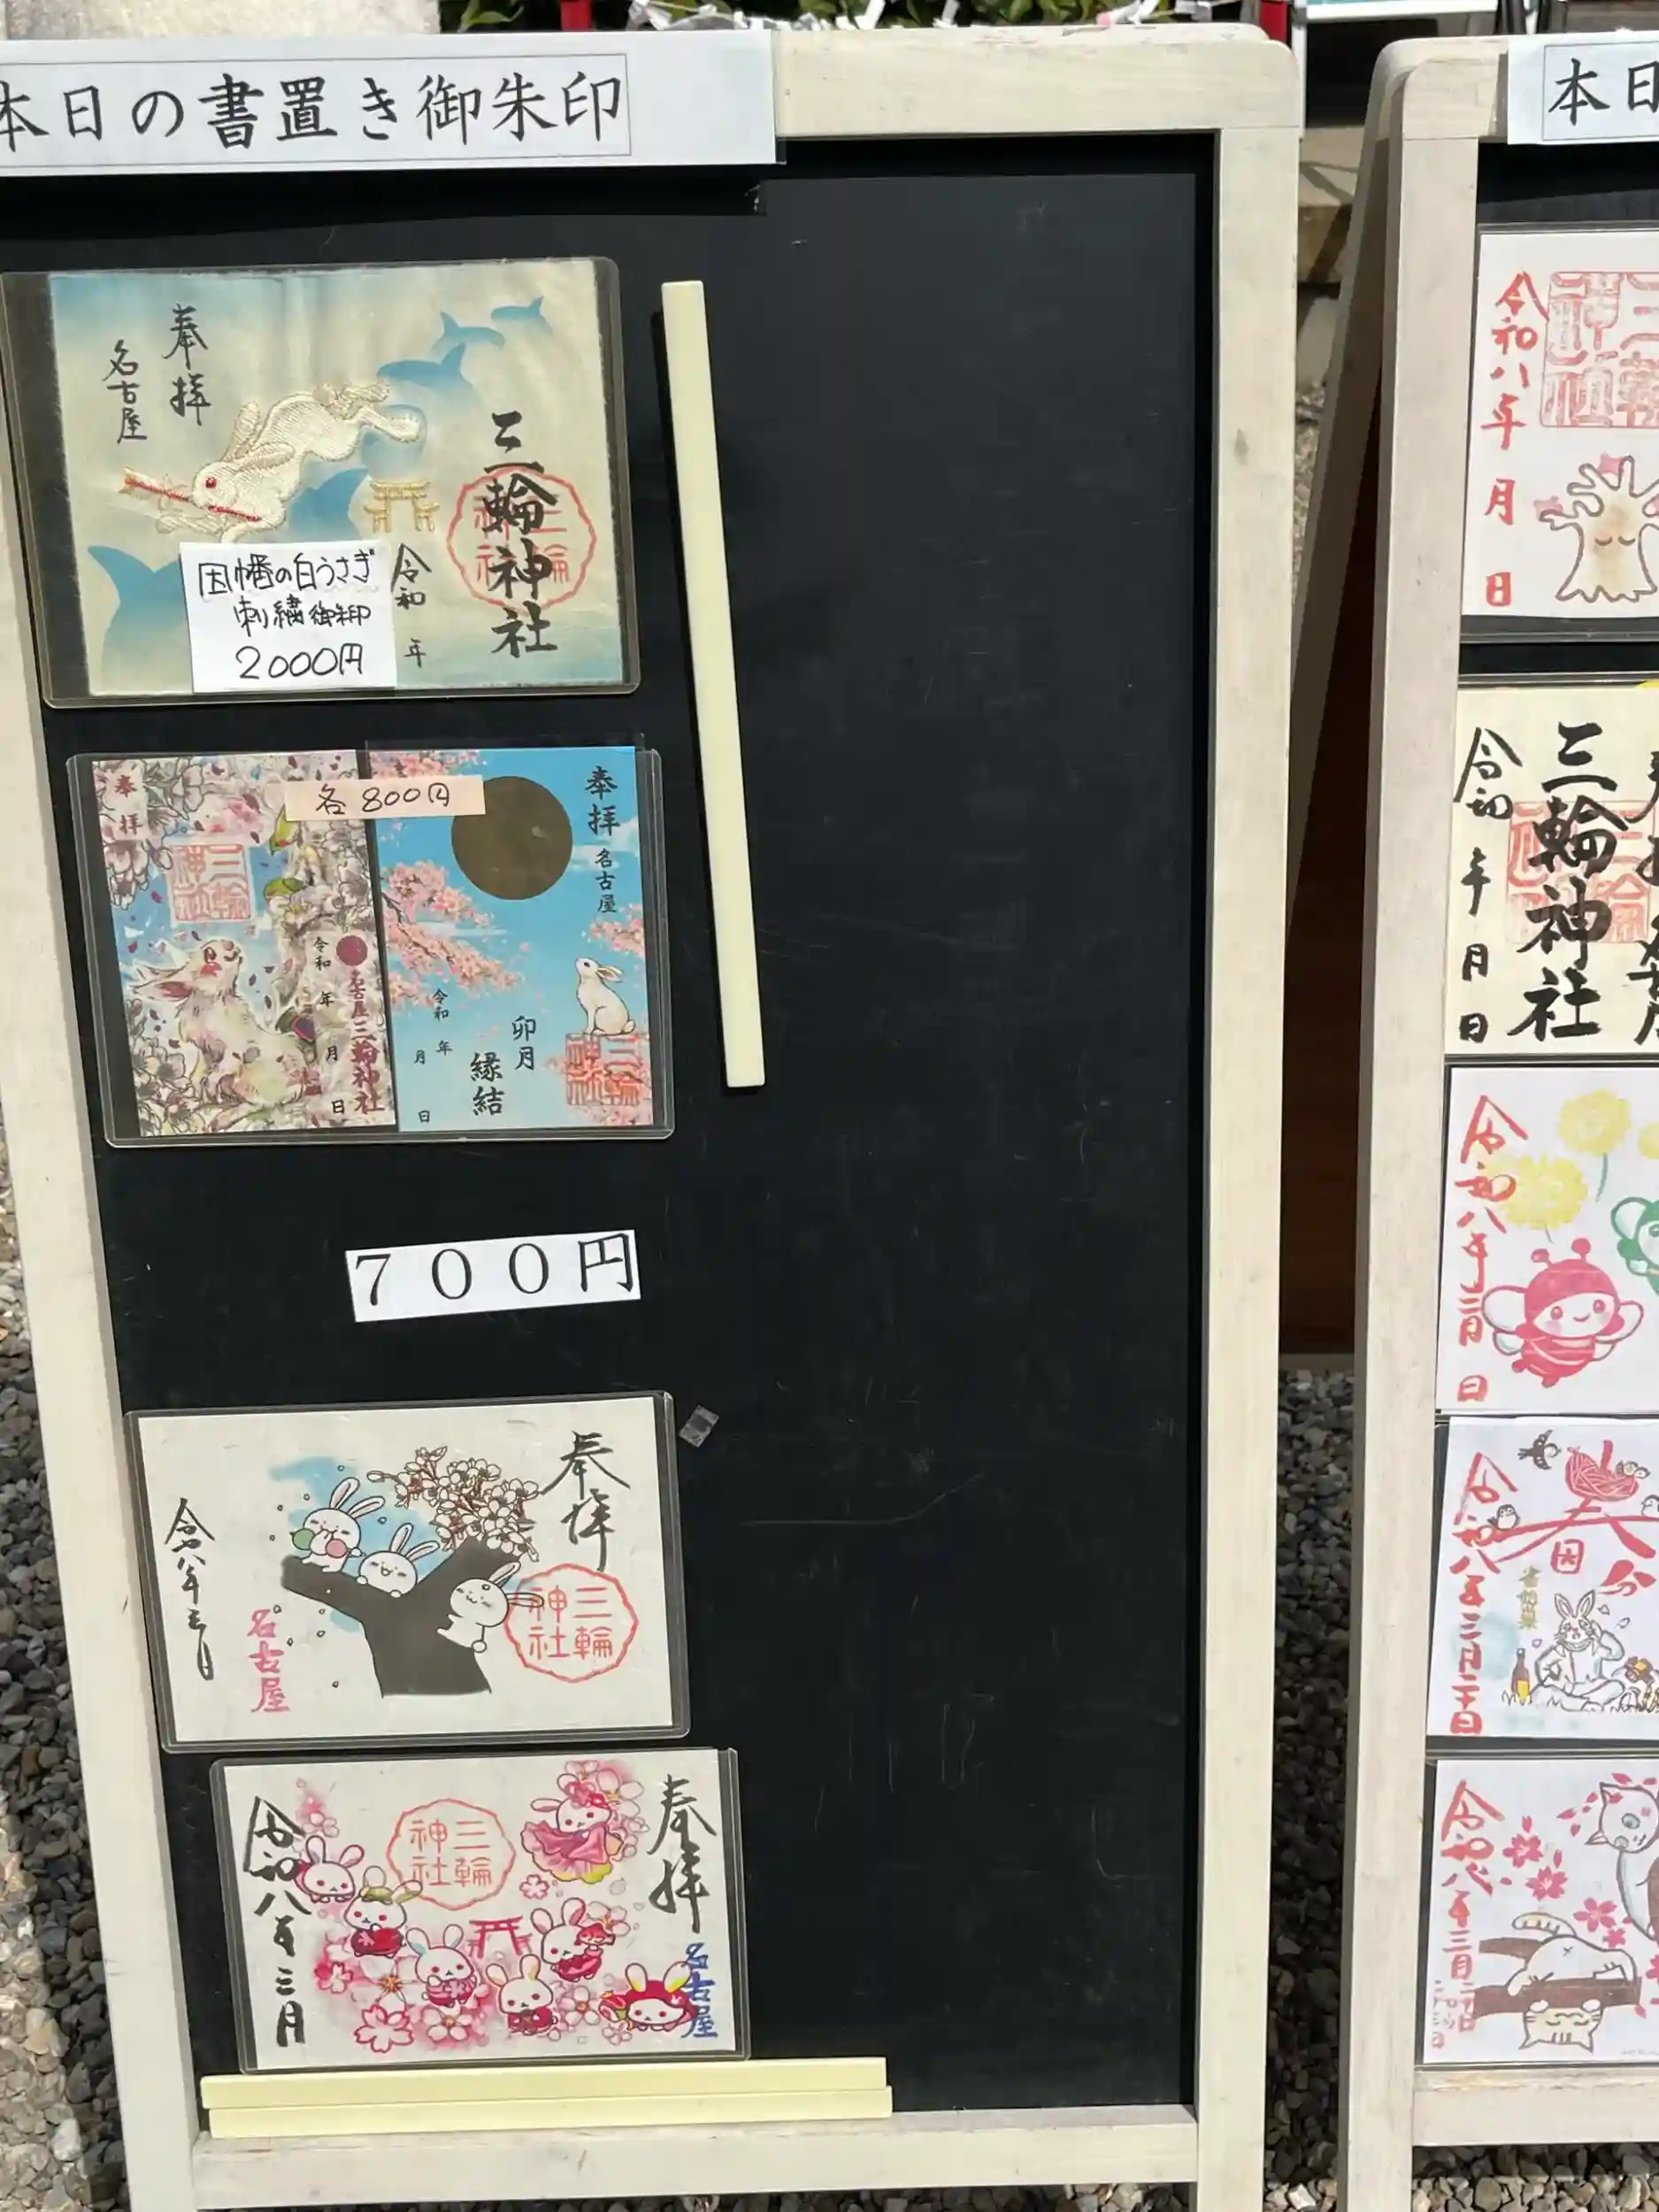 本日の書置き御朱印
奉拝
名古屋
三輪神社
三輪神社
令和 年
因幡の白うさぎ
刺繍御朱印
2000円
各800円
奉拝
三輪神社
令和 年 月 日
名古屋三輪神社
奉拝
名古屋
卯月
縁結
令和 年 月 日
三輪神社
700円
奉拝
三輪神社
令和八年三月
名古屋
奉拝
名古屋
三輪神社
令和八年三月
本日
三輪神社
令和八年 月 日
三輪神社
令和 年 月 日
令和八年三月 日
春分
令和八年三月二十日
令和八年三月